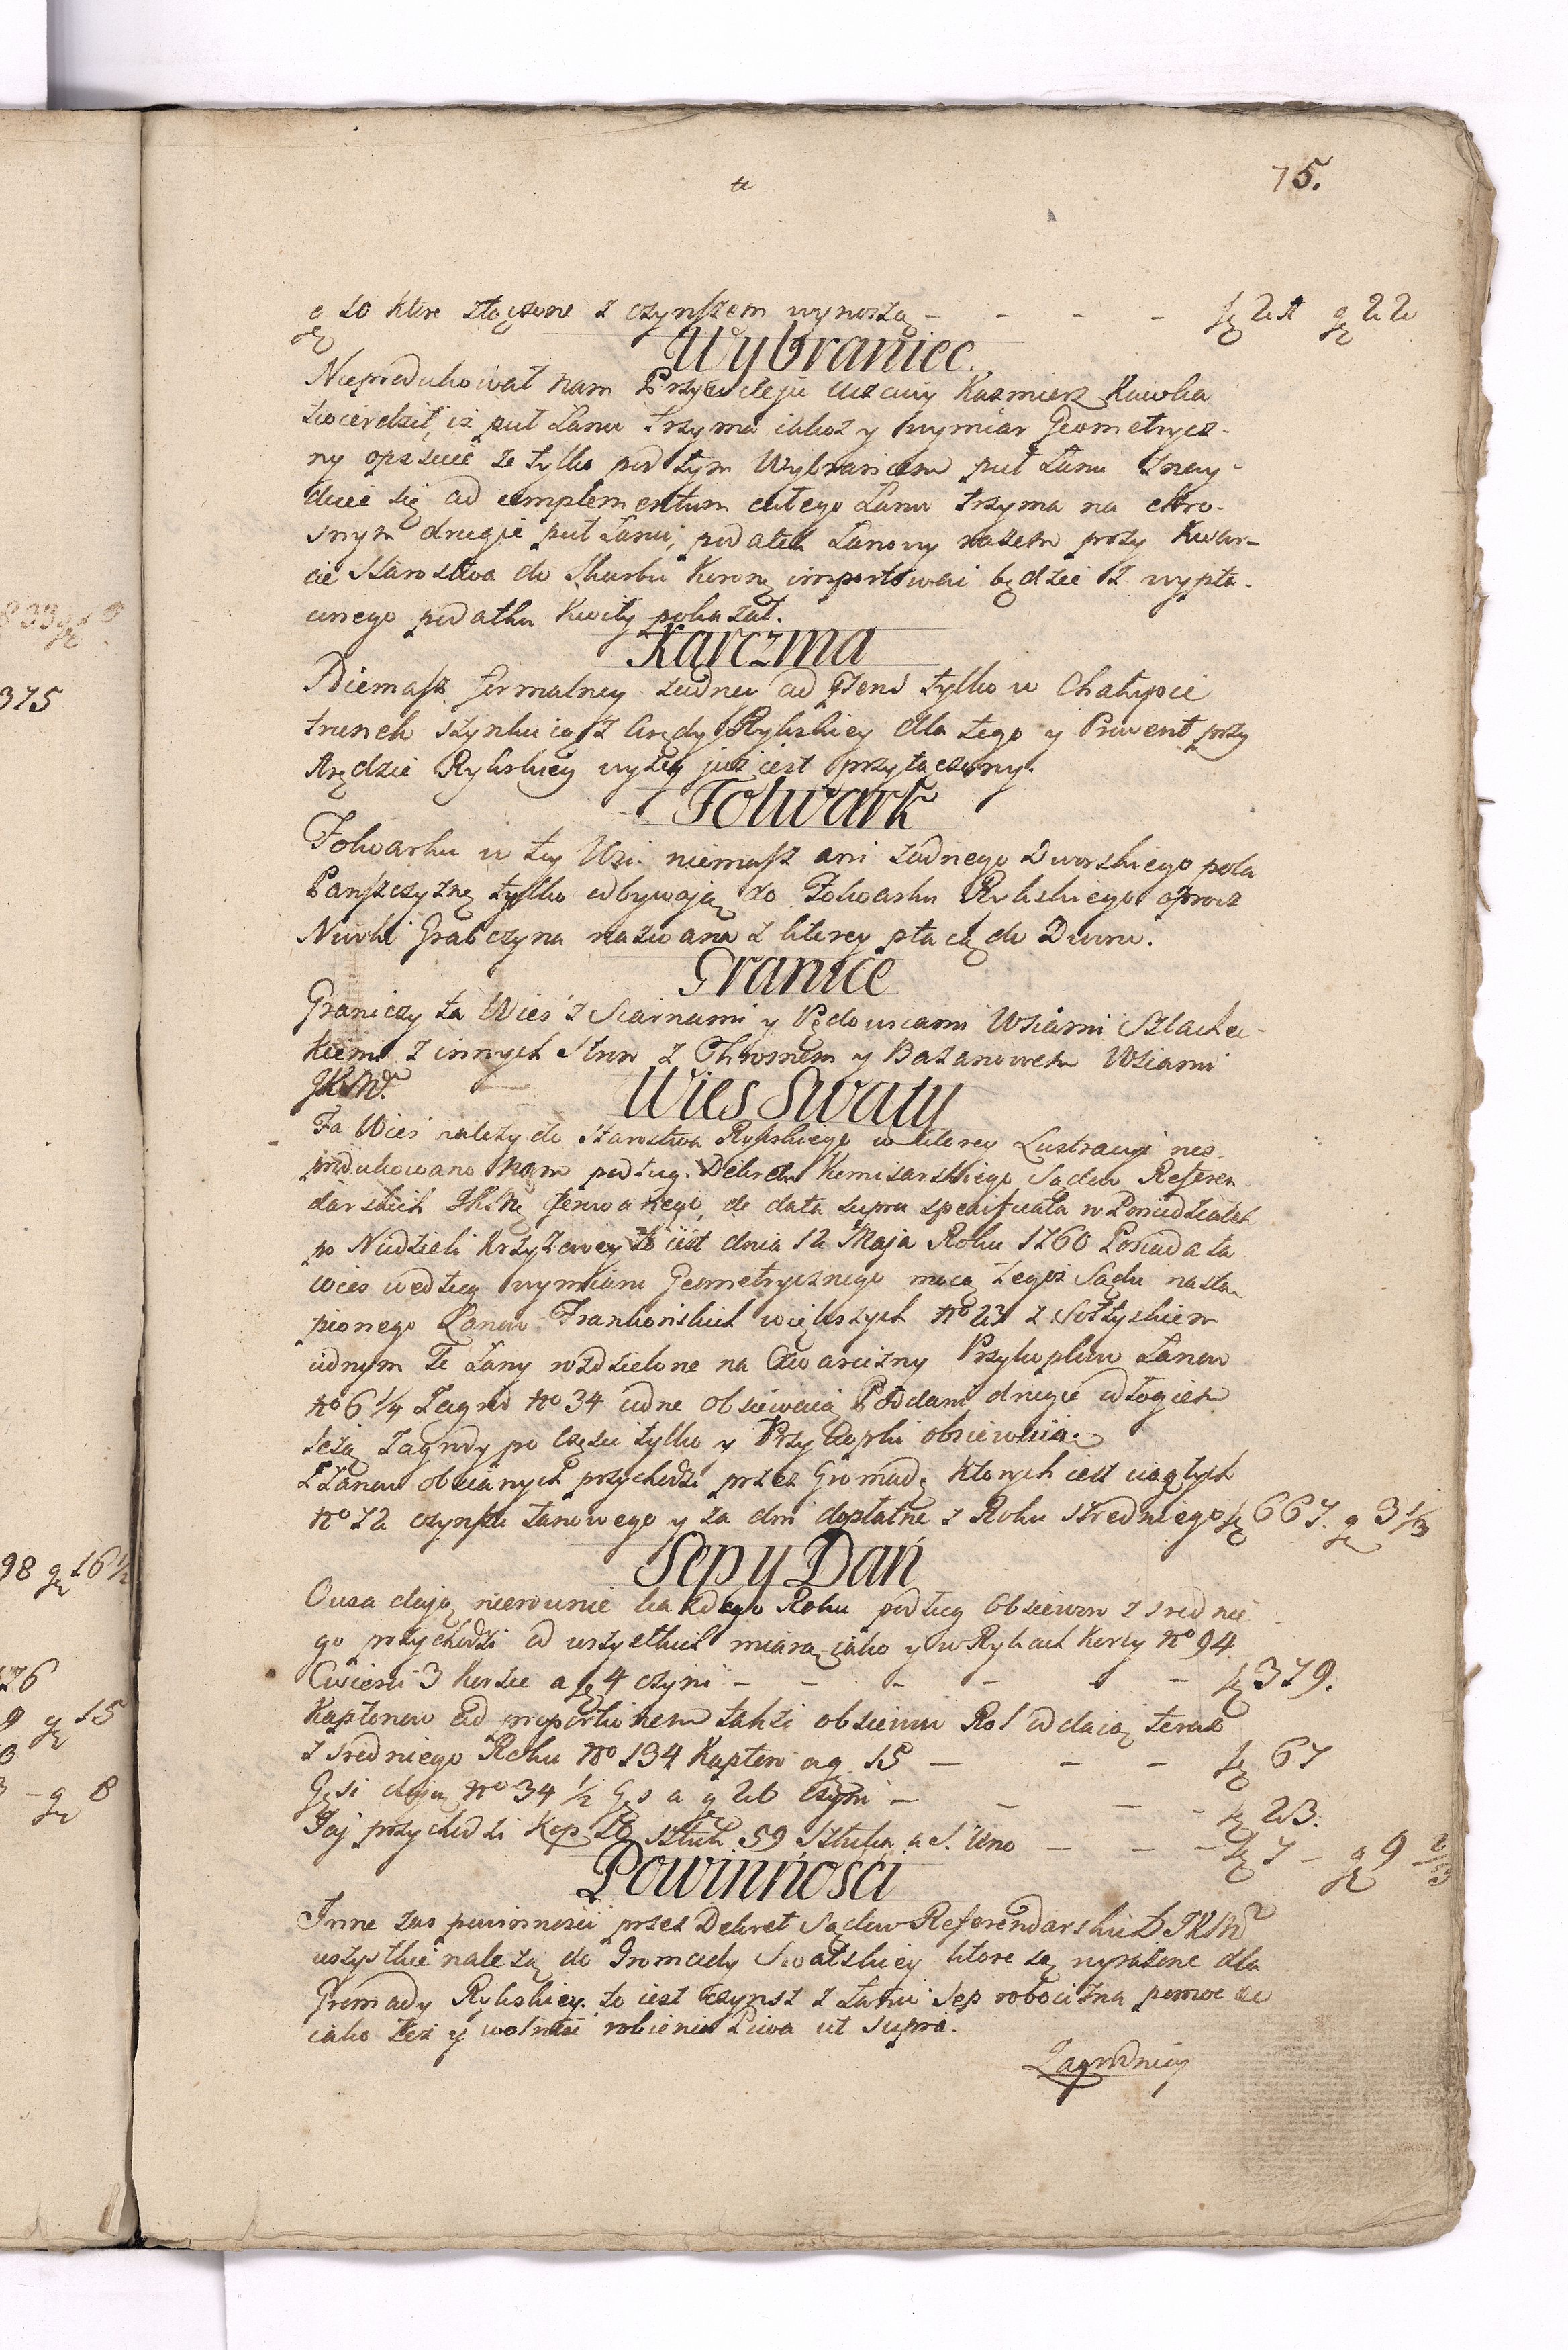 75.
a g 20 ktore złączone z czynszem wynoszą - - - - f 21 g 22
Wybraniec.
Nieprodukował nam Przywileju uczciwy Kazmierz Kawka
twierdził, iz puł Łanu trzyma iakoz y wymiar Geometrycz-
ny opszcie ze tylko pod tym Wybrancem puł Łanu znay-
duie się ad complementum całego Łanu trzyma na
snym drugie puł Łanu, podatek Łanowy razem przy Kwar-
cie Starostwa do Skarbu Koron importowai będzie z wypła-
conego podatku kwity pokazał.
Karczma
Niemasz formalney zadney ad tylko w Chałupie
trunek szynkuią z Arędy Rykskiey dla tego y Prowent przy
Arędzie Rykskiey wyzey już iest przyłączony.
Folwark
Folwarku w tey Wsi niemasz ani zadnego Dworskiego pola
Panszczyznę tylko odbywają do Folwarku Rykskiego oprocz
Niwki Grabczyna nazwana z ktorey płacą do Dworu.
Granice
Graniczy ta Wies z Sciarnami y Wsiami Szlachec-
kiemi z innych Stron z Ochrosnem y Bazanowem Wsiami
JKMci.
Wies Swaty
Ta Wies należy do Starostwa Rykskiego w ktorey Lustracyi nes
produkowano nam podług Dekretu Komisarskiego Sądow Referen
darskich JKMci ferowanego, de data supra specificata w Poniedziałek
po Niedzieli Krzyżowey to iest dnia 12 Maja Roku 1760 Posiada ta
wies według wymiaru Geometrycznego mocą tegoż Sądu nastą
pionego Łanow Frankońskich większych No 23 z Sołtyskiem
iednym Te Łany rozdzielone na Cwarcizny Przykopkow Łanow
No 6 1/4 Zagrod No 34 iedne obsiewaią Poddani drugie odłogiem
leżą Zagrody po części tylko y Przykopki obsiewaią.
Z Łanow obsianych przychodzi przez Gromadę ktorych iest ciągłych
No 72 czynszu Łanowego y za dni dopłatne z Roku sredniego f 667. g 3 1/3
Sep y Dań
Owsa dają nierownie każdego Roku podług Obsiewow z srednie
go przychodzi od wszystkich miarą iako y w Rykach Korcy No 94
Cwierci 3 Korzec a f 4 czyni - - - - - - f 379.
Kapłonow ad proportionem także obsiewu Rol oddaią teraz
z sredniego Roku No 134 Kapłon a g 15 - - - f 67
Gęsi dają No 34 1/2 Gęs a g 20 czyni - - - - f 23.
Jaj przychodzi Kop sztuk 59 Sztuka a S. Uno - - - f 7 - g 9 2/3
Powinności
Inne zas powinnosci przez Dekret Sądow Referendarskich JKMci
wszystkie należą do Gromady Swatskiey ktore są wyrażone dla
Gromady Rykskiey. to iest Czynsz z Łanu Sep robocizna pomoc
iako też y wolność robienia Piwa ut supra.
Zagrodnicy
833 g
375
98 g 16 1/2
176
9 g 15
g 8